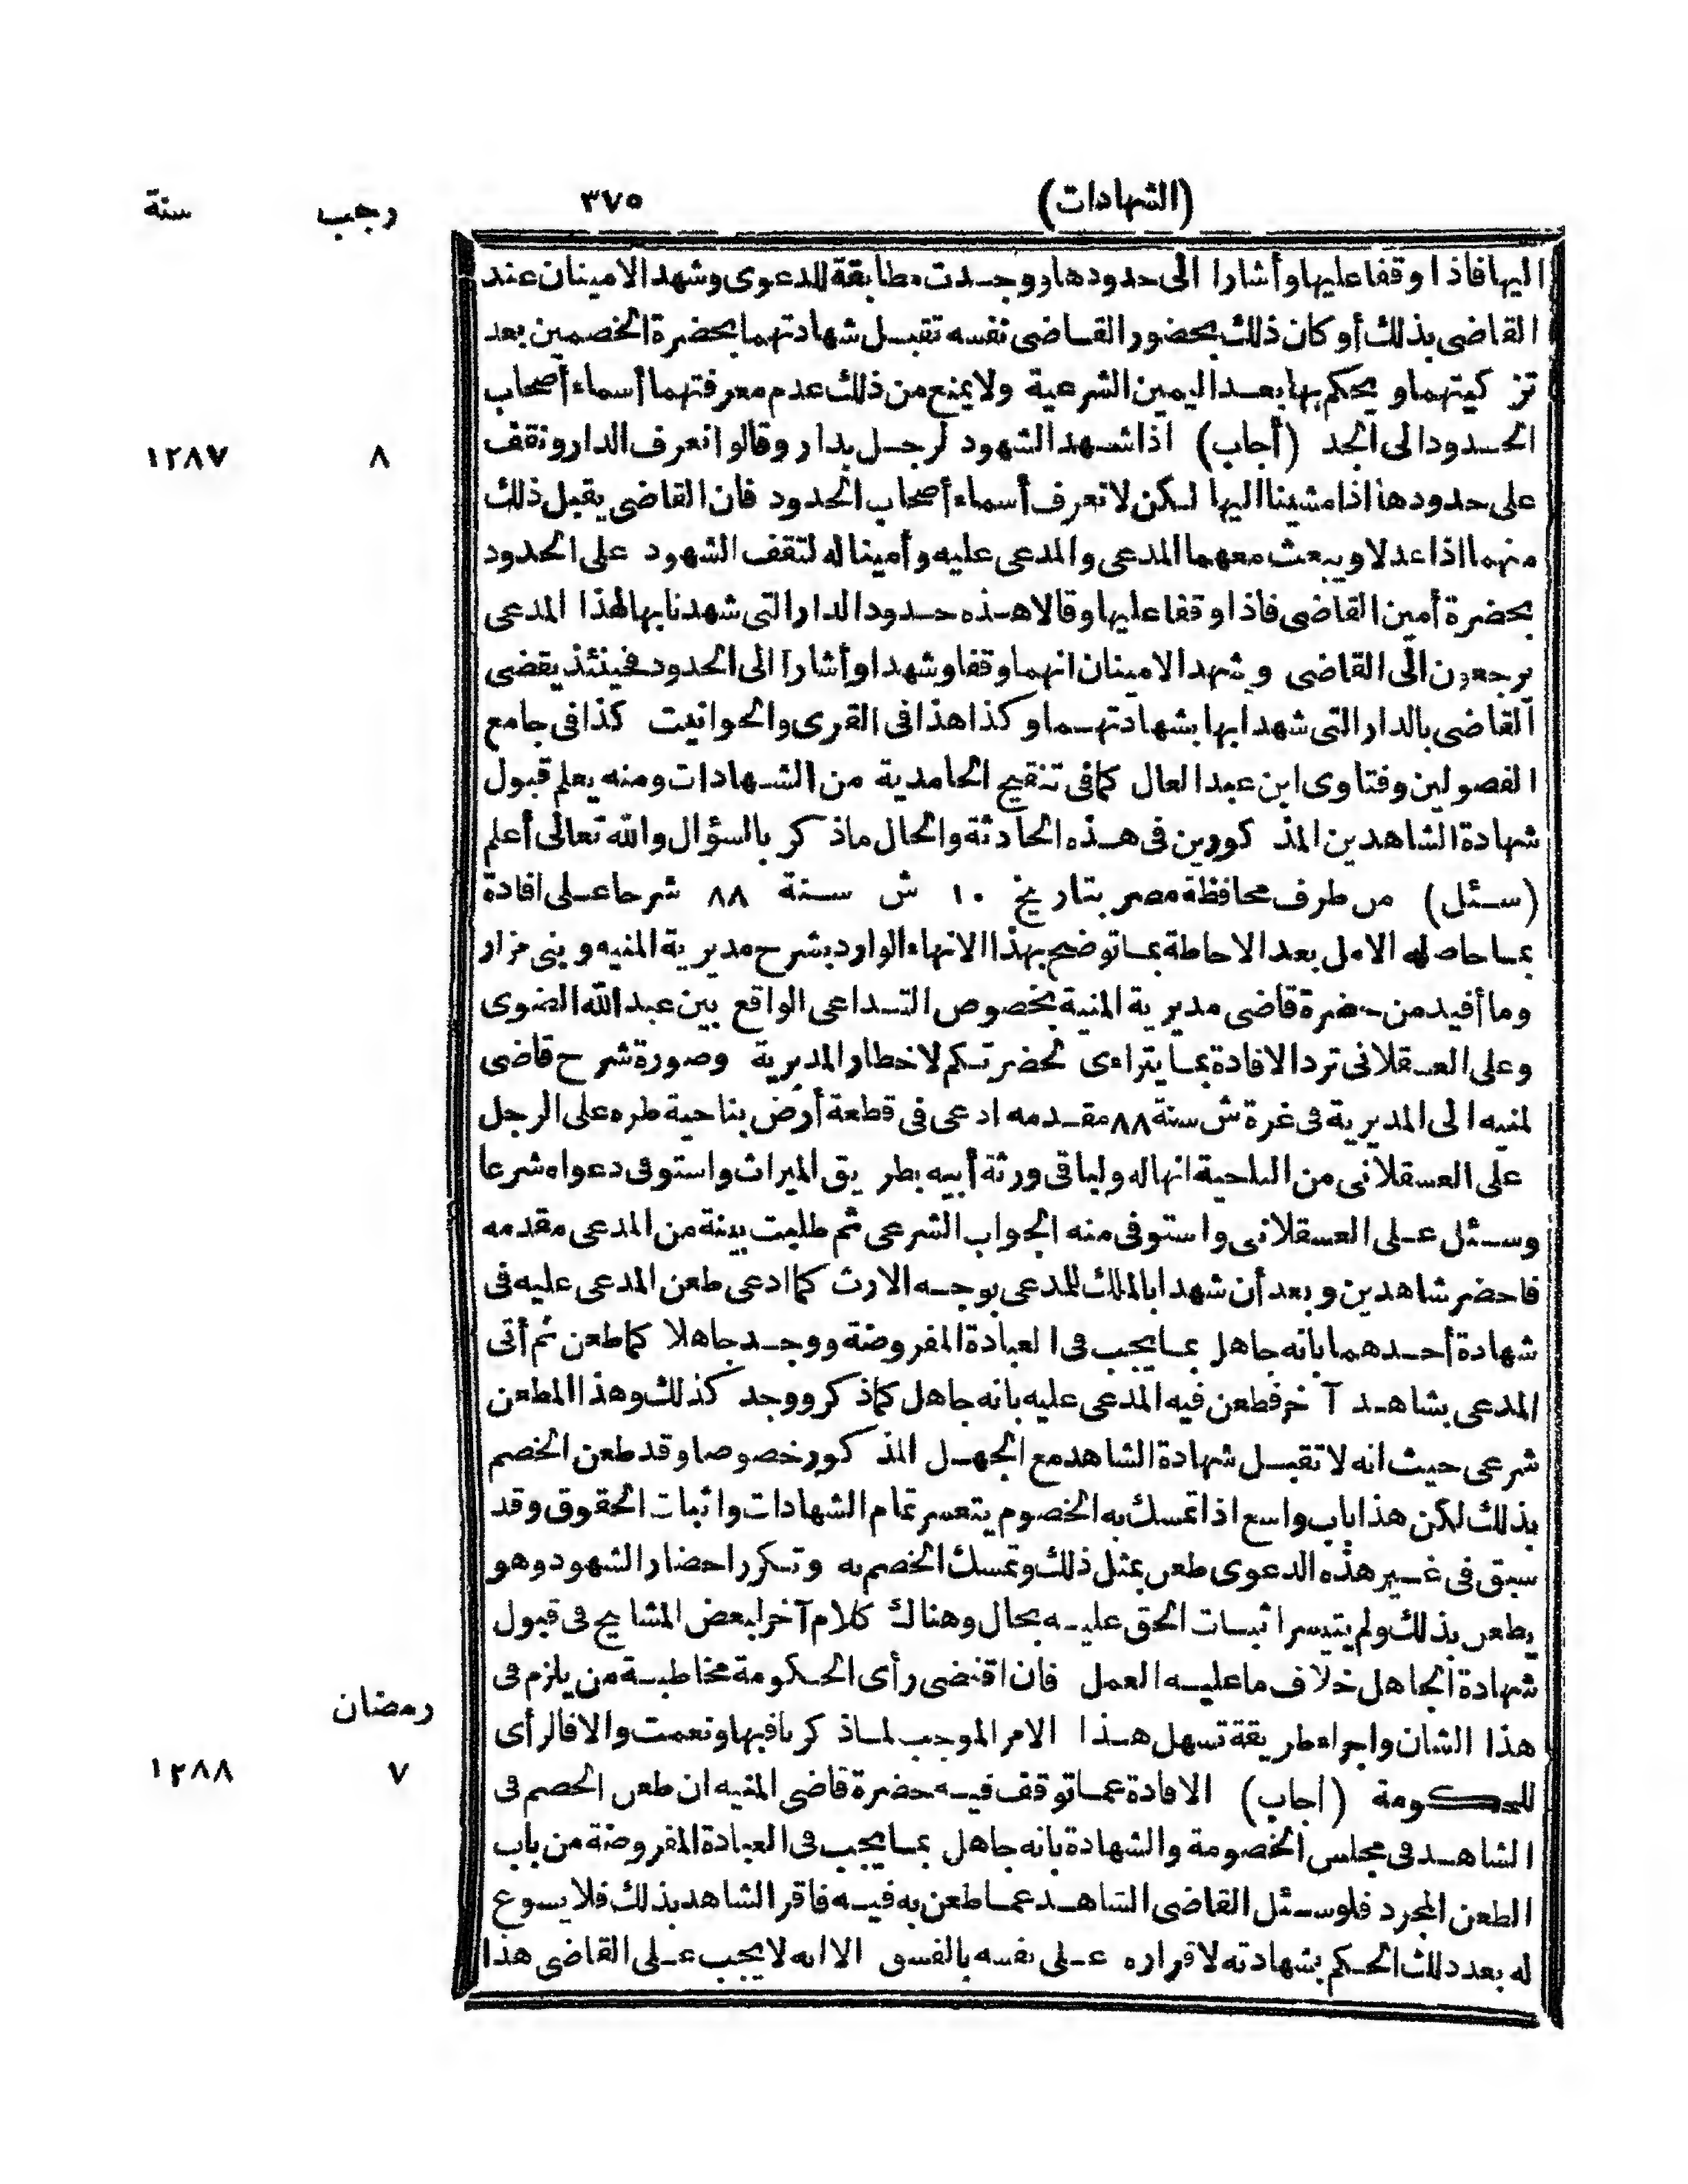 (الشهادات) ٣٧٥ رجب سنة
اليها فاذا وقفا عليها وأشارا الى حدودها ووجدت مطابقة للدعوى وشهد الامينان عند
القاضى بذلك أو كان ذلك بحضور القاضى نفسه تقبل شهادتهما بحضرة الخصمين بعد
تزكيتهما ويحكم بها بعد اليمين الشرعية ولا يمنع من ذلك عدم معرفتهما أسماء أصحاب
الحدود الى الجد (أجاب) اذا شهد الشهود لرجل بدار وقالوا نعرف الدار ونقف ٨ ١٢٨٧
على حدودها اذا مشينا اليها لكن لا نعرف أسماء أصحاب الحدود فان القاضى يقبل ذلك
منهما اذا عدلا ويبعث معهما المدعى والمدعى عليه وأمينا له لتقف الشهود على الحدود
بحضرة أمين القاضى فاذا وقفا عليها وقالا هذه حدود الدار التى شهدنا بها لهذا المدعى
يرجعون الى القاضى ويشهد الامينان انهما وقفا وشهدا وأشارا الى الحدود فحينئذ يقضى
القاضى بالدار التى شهدا بها بشهادتهما وكذا هذا فى القرى والحوانيت كذا فى جامع
الفصولين وفتاوى ابن عبد العال كما فى تنقيح الحامدية من الشهادات ومنه يعلم قبول
شهادة الشاهدين المذكورين فى هذه الحادثة والحال ماذكر بالسؤال والله تعالى أعلم
(سئل) من طرف محافظة مصر بتاريخ ١٠ ش سنة ٨٨ شرحا على افادة
بما حاصله الامل بعد الاحاطة بما توضح بهذا الانهاء الوارد بشرح مديرية المنيه وبنى مزار
وما أفيد من حضرة قاضى مديرية المنية بخصوص التداعى الواقع بين عبد الله الضوى
وعلى العسقلانى ترد الافادة بما يتراءى لحضرتكم لاخطار المديرية وصورة شرح قاضى
لمنيه الى المديرية فى غرة ش سنة ٨٨ مقدمه ادعى فى قطعة أرض بناحية طره على الرجل
على العسقلانى من الناحية انها له ولباقى ورثة أبيه بطريق الميراث واستوفى دعواه شرعا
وسئل على العسقلانى واستوفى منه الجواب الشرعى ثم طلبت بينة من المدعى مقدمه
فاحضر شاهدين وبعد أن شهدا بالملك للمدعى بوجه الارث كما ادعى طعن المدعى عليه فى
شهادة أحدهما بانه جاهل بما يجب فى العبادة المفروضة ووجد جاهلا كما طعن ثم أتى
المدعى بشاهد آخر فطعن فيه المدعى عليه بانه جاهل كما ذكر ووجد كذلك وهذا المطعن
شرعى حيث انه لا تقبل شهادة الشاهد مع الجهل المذكور خصوصا وقد طعن الخصم
بذلك لكن هذا باب واسع اذا تمسك به الخصوم يتعسر تمام الشهادات واثبات الحقوق وقد
سبق فى غير هذه الدعوى طعن بمثل ذلك وتمسك الخصم به وتكرر احضار الشهود وهو
يطعن بذلك ولم يتيسر اثبات الحق عليه بحال وهناك كلام آخر لبعض المشايخ فى قبول
شهادة الجاهل خلاف ما عليه العمل فان اقتضى رأى الحكومة مخاطبة من يلزم فى
رمضان
هذا الشان واجراء طريقة تسهل هذا الامر الموجب لماذكرنا فبها ونعمت والا فالرأى
للحكومة (أجاب) الافادة عما توقف فيه حضرة قاضى المنيه ان طعن الخصم فى ٧ ١٢٨٨
الشاهد فى مجلس الخصومة والشهادة بانه جاهل بما يجب فى العبادة المفروضة من باب
الطعن المجرد فلو سئل القاضى الشاهد عما طعن به فيه فاقر الشاهد بذلك فلا يسوغ
له بعد ذلك الحكم بشهادته لاقراره على نفسه بالفسق الا انه لا يجب على القاضى هذا